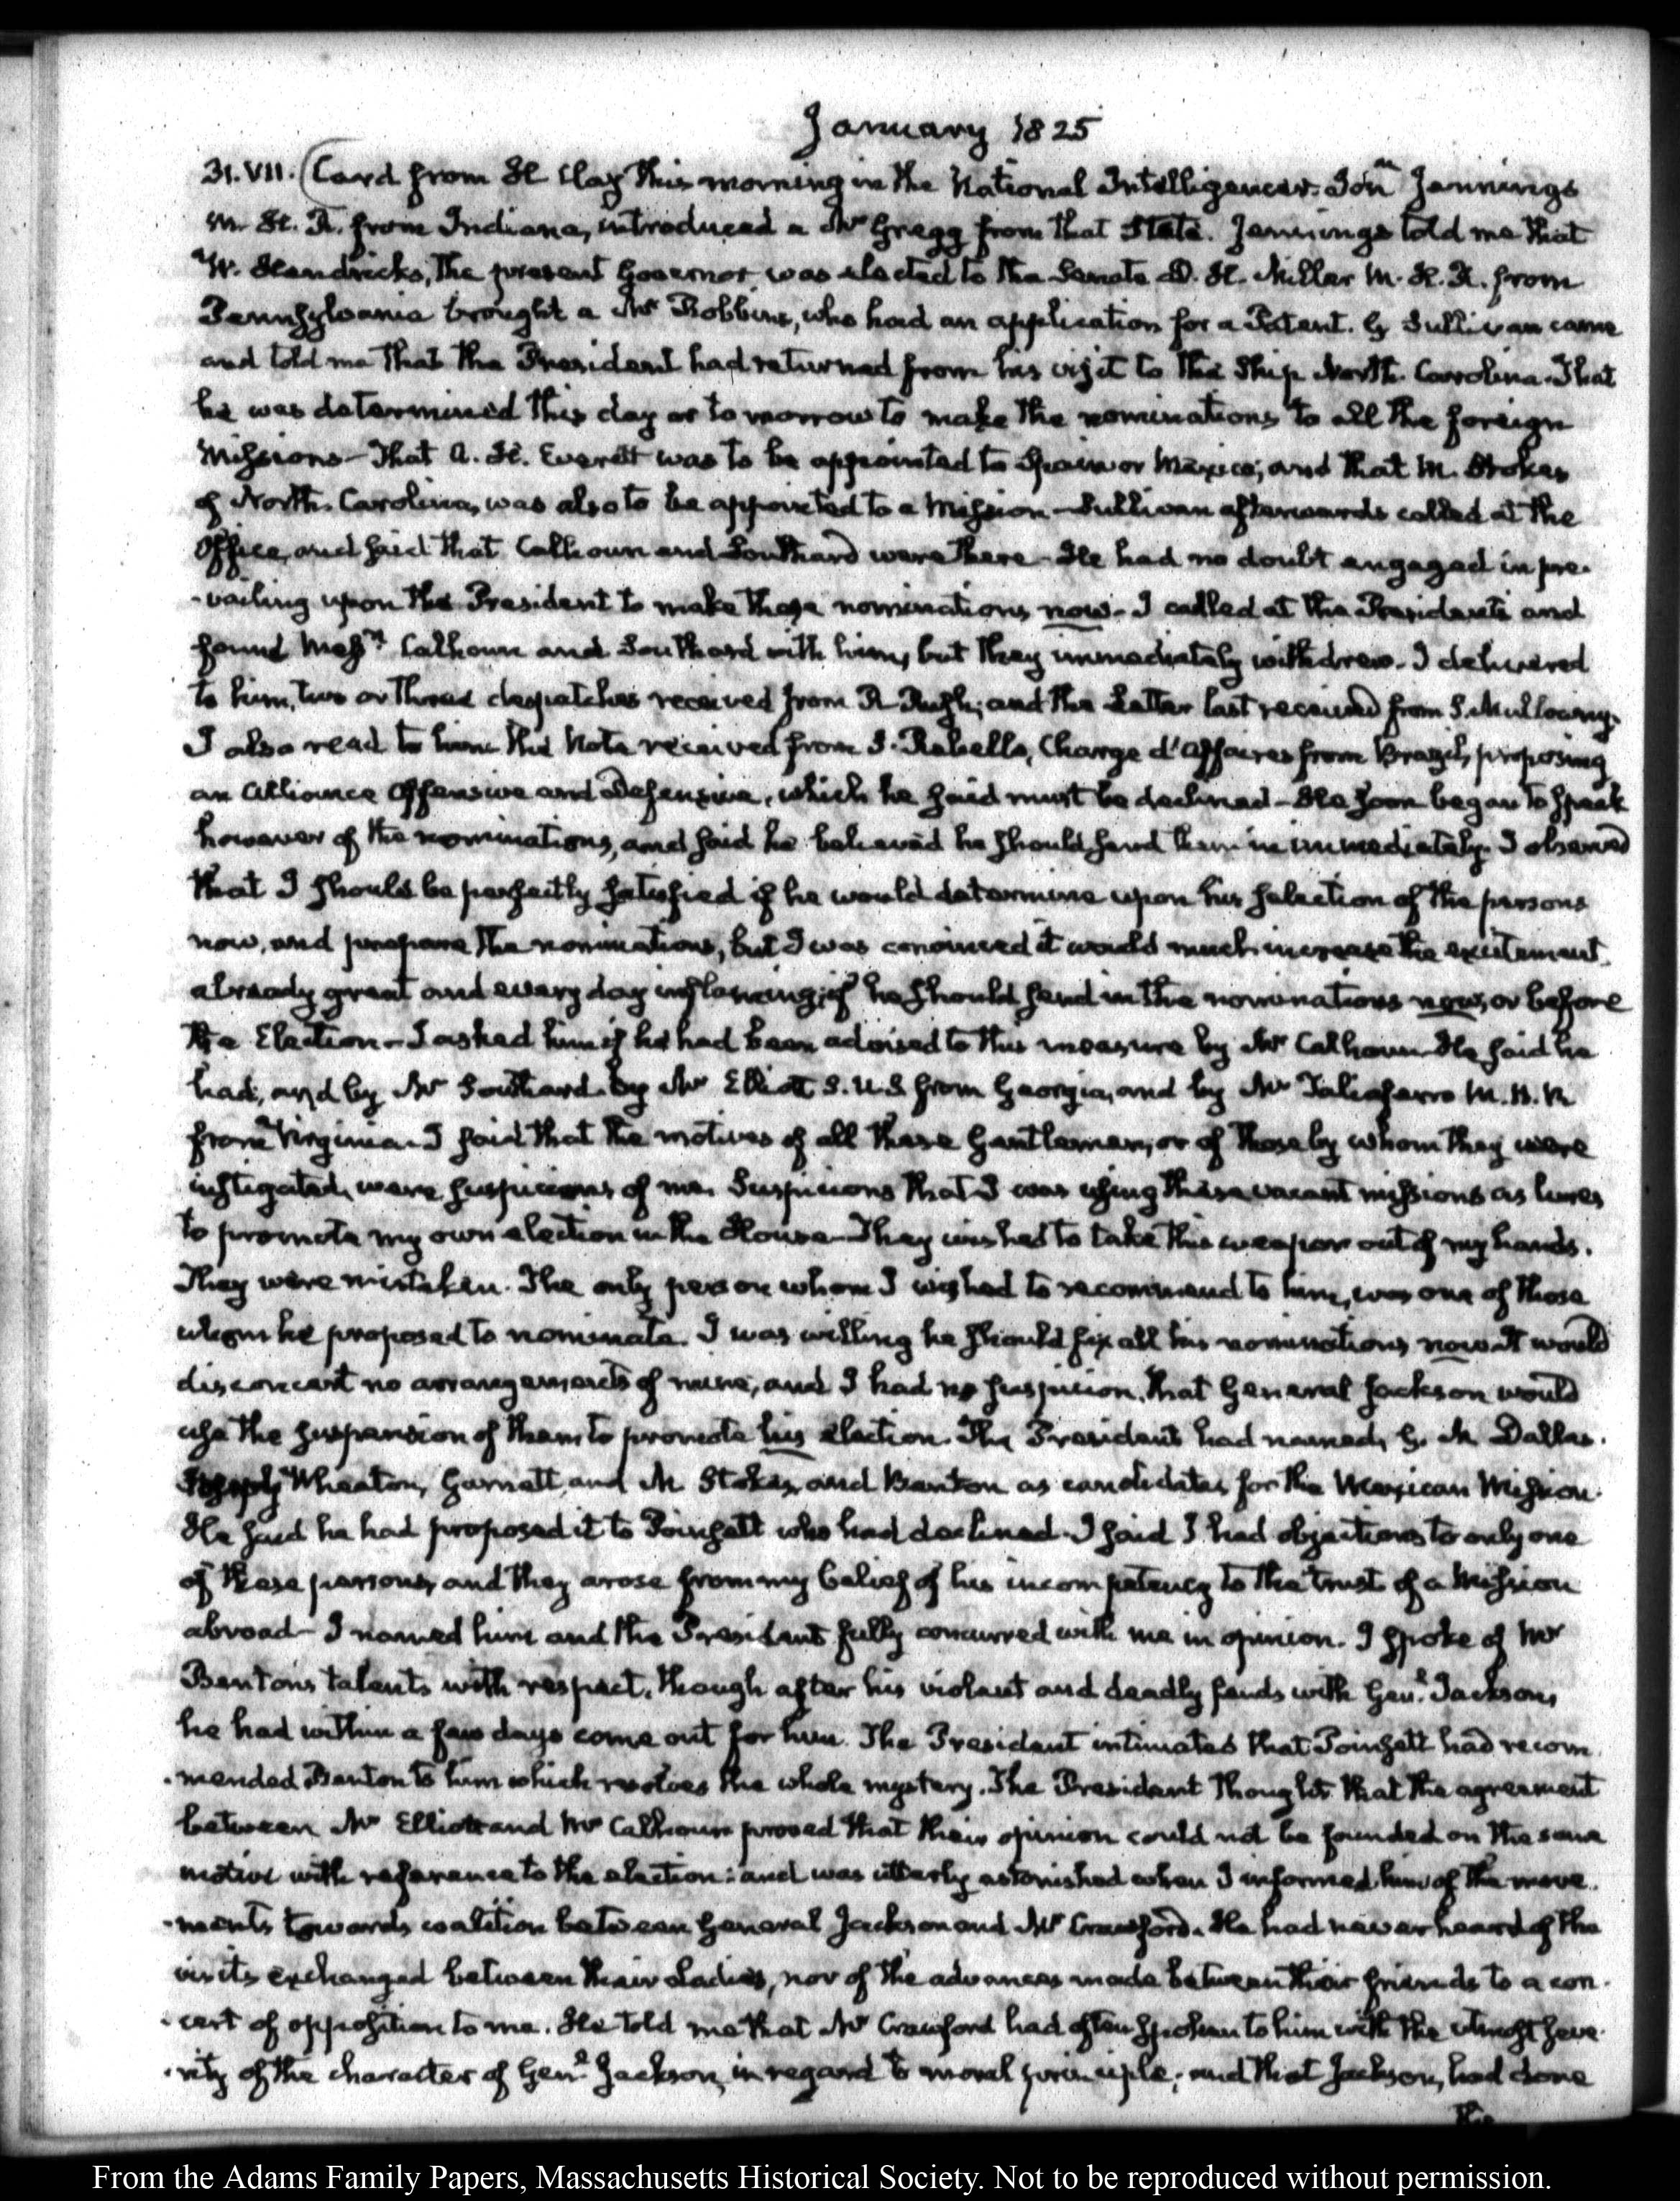 January 1825
31. VII. (Card from H Clay this morning in the National Intelligencer. Jonn Jennings
M. H. R. from Indiana, introduced a Mr Gregg from that State. Jennings told me that
W. Hendricks, the present Governor was elected to the Senate D. H. Miller M. H. R. from
Pennsylvania brought a Mr Robbins, who had an application for a Patent. G Sullivan came
and told me that the President had returned from his visit to the Ship North Carolina. That
he was determined this day or to morrow to make the nominations to all the foreign
Missions — That A. H. Everett was to be appointed to Spain or Mexico; and that M. Stokes
of North Carolina, was also to be appointed to a Mission — Sullivan afterwards called at the
Office, and said that Calhoun and Southard were there — He had no doubt engaged in pre-
-vailing upon the President to make these nominations now. I called at the Presidents and
found Messrs Calhoun and Southard with him, but they immediately withdrew. I delivered
to him, two or three despatches received from R Rush; and the Letter last received from J. Mullowny.
I also read to him the Note received from J. Rebello, Chargé d'Affaires from Brazil, proposing
an Alliance Offensive and Defensive, which he said must be declined — He soon began to speak
however of the nominations, and said he believed he should send them in immediately. I observed
that I should be perfectly satisfied if he would determine upon his selection of the persons
now, and prepare the nominations, but I was convinced it would much increase the excitement
already great and every day inflaming; if he should send in the nominations now, or before
the Election — I asked him if he had been advised to this measure by Mr Calhoun — He said he
had, and by Mr Southard by Mr Elliott S. U. S from Georgia, and by Mr Taliaferro M. H. R
from Virginia. I said that the motives of all these Gentlemen, or of those by whom they were
instigated, were suspicions of me. Suspicions that I was using these vacant missions as lures
to promote my own election in the House — They wished to take this weapon out of my hands.
They were mistaken. The only person whom I wished to recommend to him, was one of those
whom he proposed to nominate. I was willing he should fix all his nominations now It would
disconcert no arrangements of mine, and I had no suspicion, that General Jackson would
use the suspension of them to promote his election. The President had named, G. M Dallas.
Wheaton, Garnett, and M Stokes, and Benton as candidates for the Mexican Mission.
He said he had proposed it to Poinsett who had declined. I said I had objections to only one
of these persons, and they arose from my belief of his incompetency to the trust of a Mission
abroad — I named him and the President fully concurred with me in opinion. I spoke of Mr
Benton's talents with respect, though after his violent and deadly feuds with Genl. Jackson,
he had within a few days come out for him. The President intimated that Poinsett had recom
-mended Benton to him which resolves the whole mystery. The President thought that the agreement
between Mr Elliott and Mr Calhoun proved that their opinion could not be founded on the same
motive with reference to the election: and was utterly astonished when I informed him of the move
-ments towards coalition between General Jackson and Mr Crawford. He had never heard of the
visits exchanged between their Ladies, nor of the advances made between their friends to a con-
-cert of opposition to me. He told me that Mr Crawford had often spoken to him with the utmost seve-
-rity of the character of Genl. Jackson, in regard to moral principle; and that Jackson, had done
the
From the Adams Family Papers, Massachusetts Historical Society. Not to be reproduced without permission.